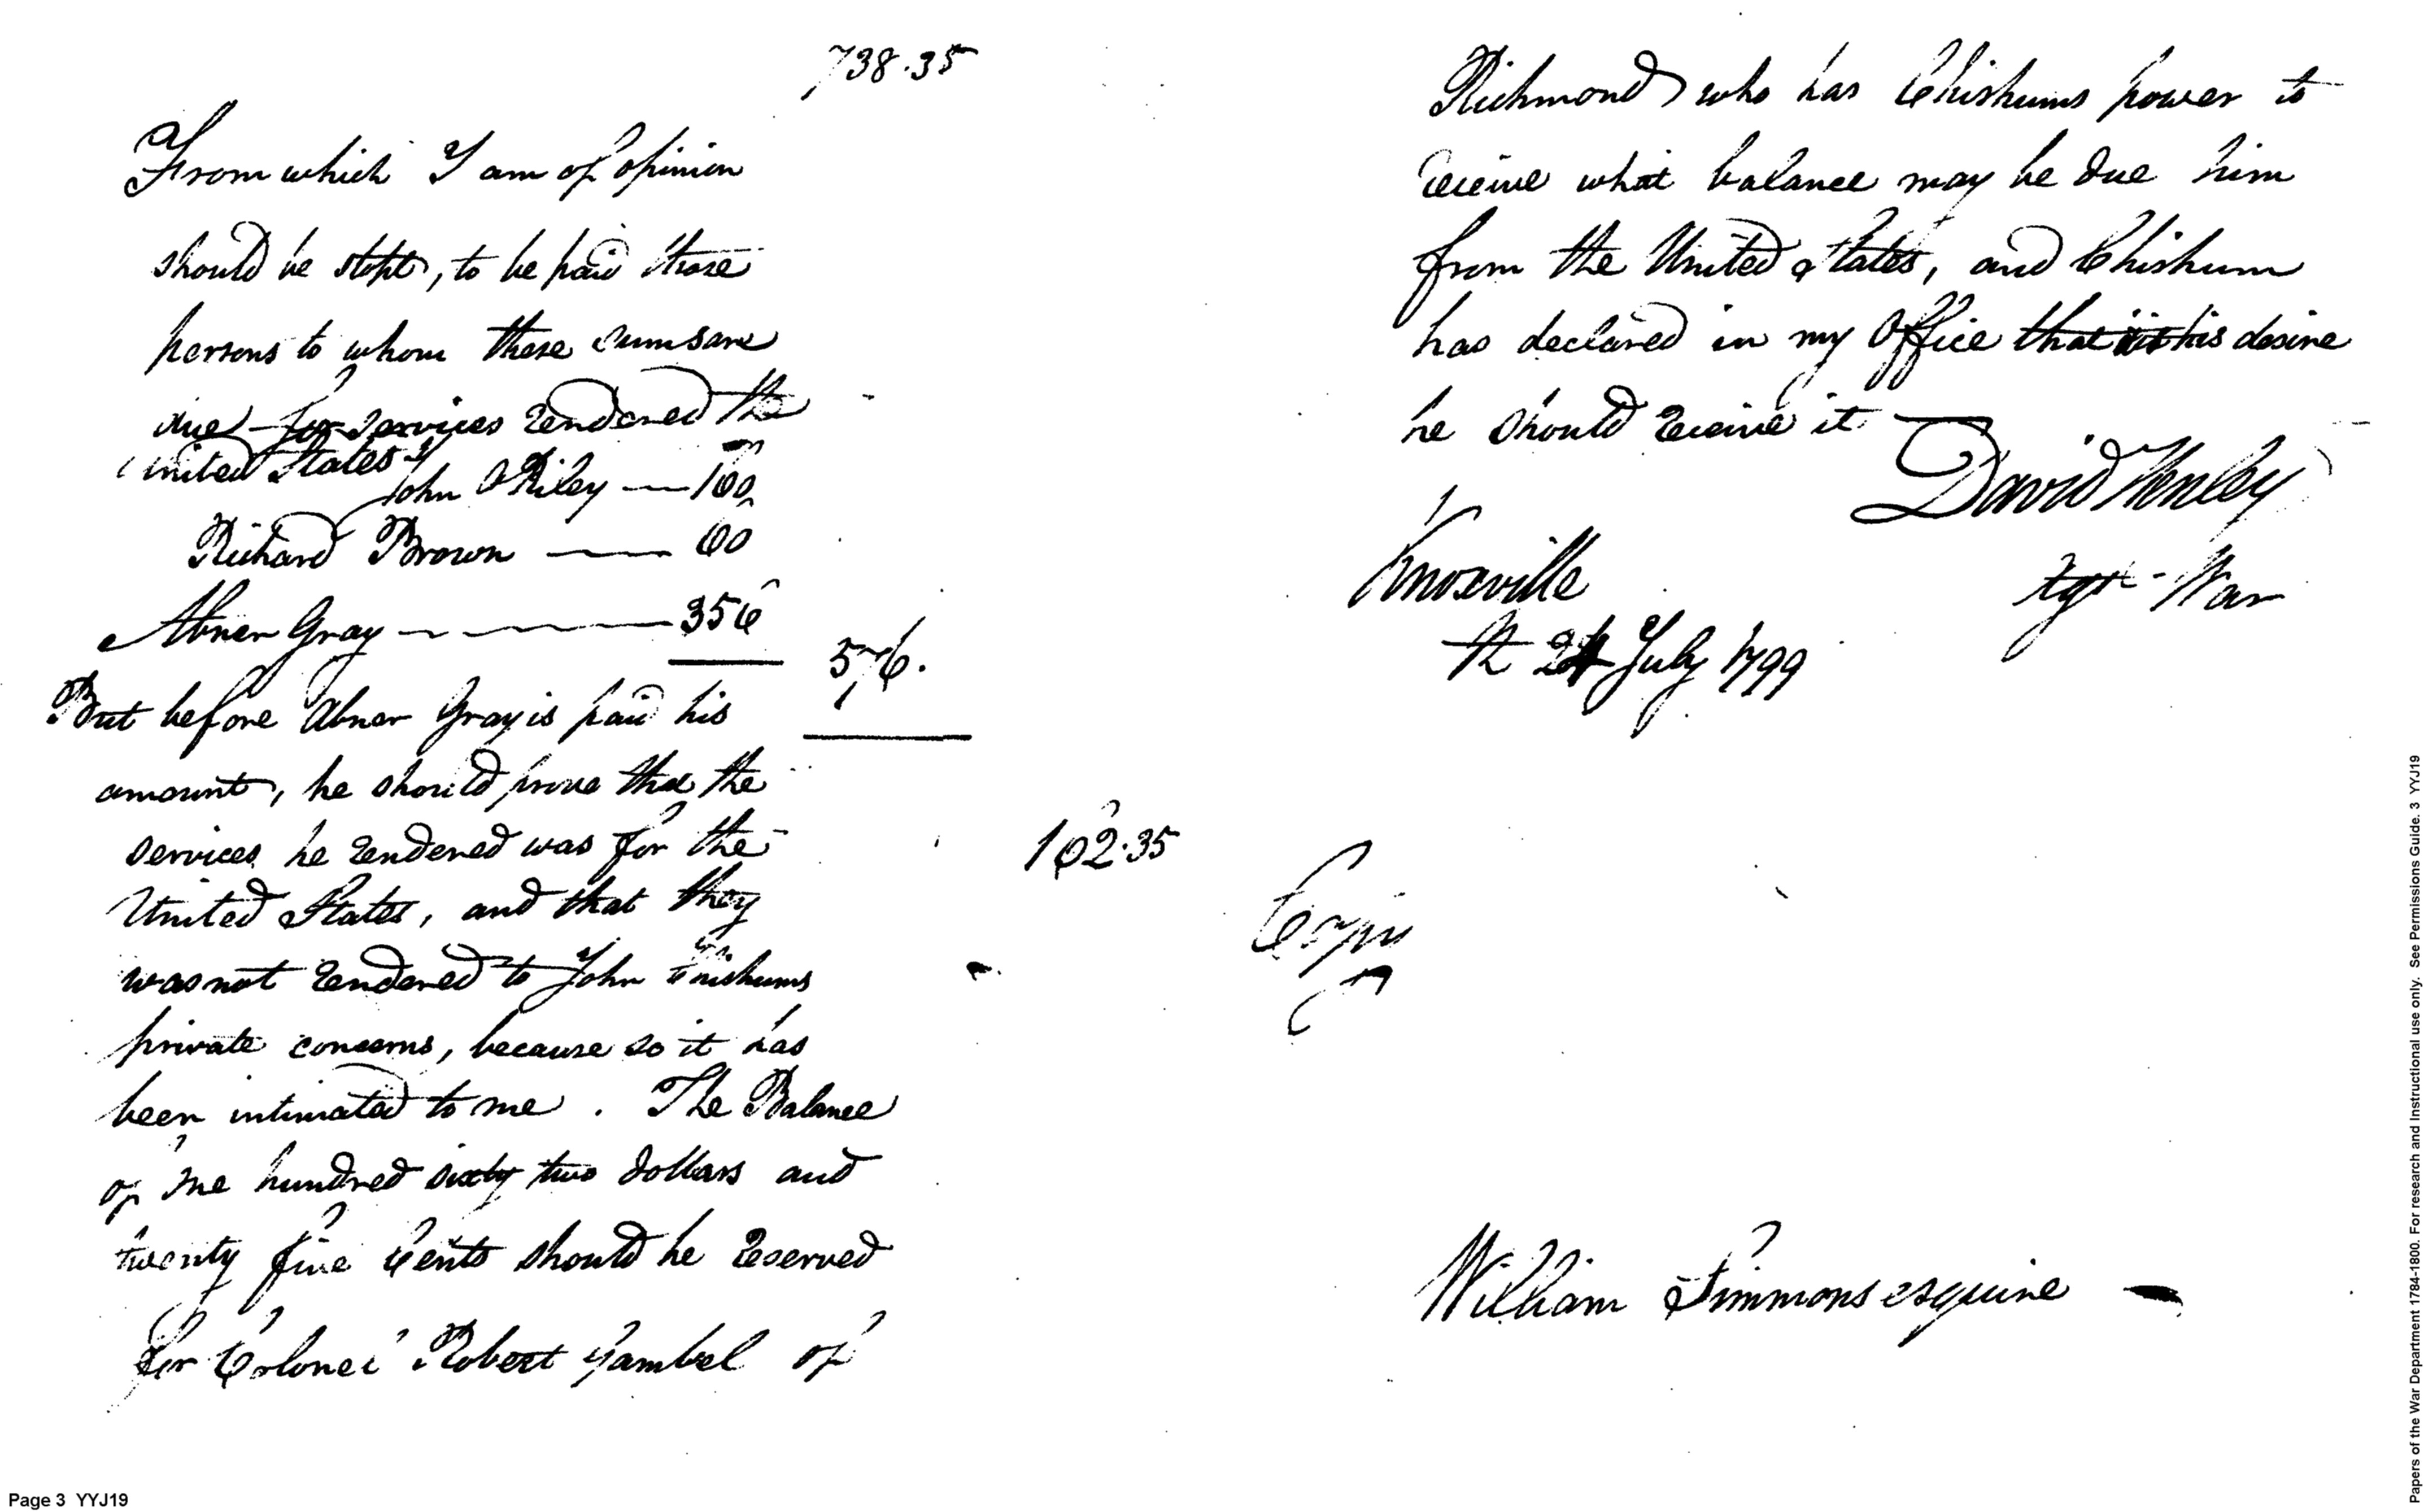 738.35
From which I am of opinion
should be stopt, to be paid those
persons to whom these sums are
due for services rendered the
United States Viz
John O Riley — 160
Richard Brown — 60
Abner Gray — 356
576.
But before Abner Gray is paid his
amount, he should prove that the
services he rendered was for the
United States, and that they
was not rendered to John Chishums
private concerns, because so it has
been intimated to me . The Balance
of one hundred sixty two dollars and
twenty five Cents should be reserved
for Colonel Robert Gambel of
162.35
Richmond who has Chishums power to
receive what balance may be due him
from the United States, and Chishum
has declared in my Office that it is his desire
he should receive it
David Henley
Agt War
Knoxville
24 July 1799
Copy
William Simmons esquire
Page 3 YYJ19
Papers of the War Department 1784-1800. For research and Instructional use only. See Permissions Guide. 3 YYJ19